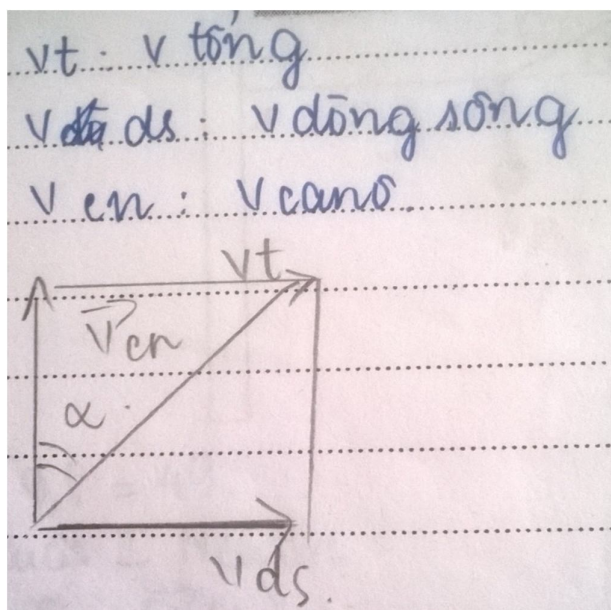 vt : v tổng
v ds : v dòng sông
v cn : v canô.
vt
v⃗cn
α
vds.